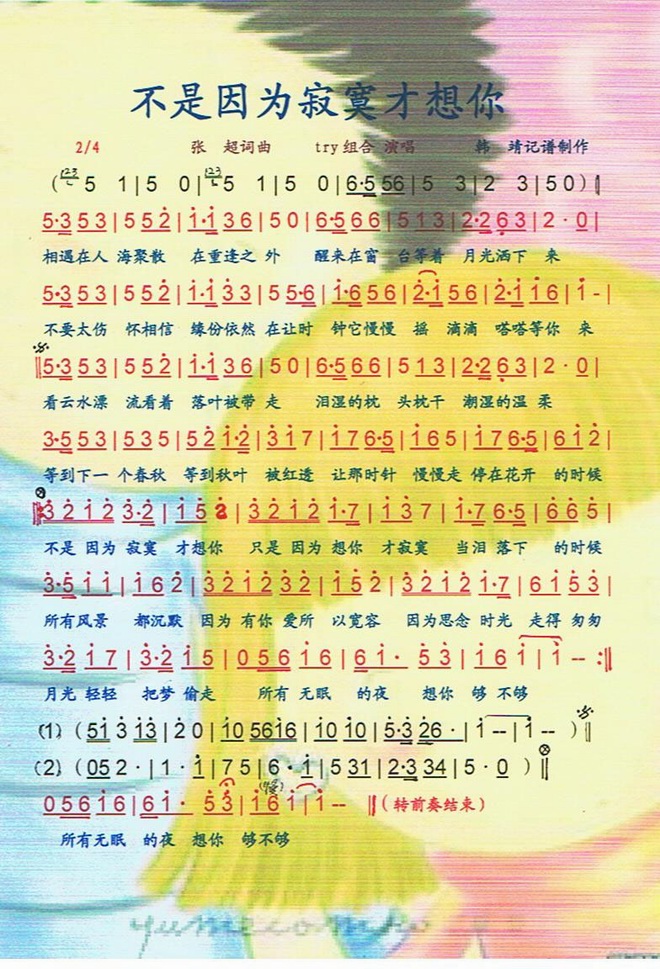 不是因为寂寞才想你
2/4 张 超词曲 try组合 演唱 韩 靖记谱制作
( 5 1 | 5 0 | 5 1 | 5 0 | 6·5 56 | 5 3 | 2 3 | 5 0 ) ‖
5·3 5 3 | 5 5 2 | 1·1 3 6 | 5 0 | 6·5 6 6 | 5 1 3 | 2·2 6 3 | 2 · 0 |
相遇在人 海聚散 在重逢之 外 醒来在窗 台等着 月光洒下 来
5·3 5 3 | 5 5 2 | 1·1 3 3 | 5 5·6 | 1·6 5 6 | 2·1 5 6 | 2·1 1 6 | 1 - |
不要太伤 怀相信 缘份依然 在让时 钟它慢慢 摇 滴滴 嗒嗒等你 来
‖5·3 5 3 | 5 5 2 | 1·1 3 6 | 5 0 | 6·5 6 6 | 5 1 3 | 2·2 6 3 | 2 · 0 |
看云水漂 流看着 落叶被带 走 泪湿的枕 头枕干 潮湿的温 柔
3·5 5 3 | 5 3 5 | 5 2 1·2 | 3 1 7 | 1 7 6·5 | 1 6 5 | 1 7 6·5 | 6 1 2 |
等到下一 个春秋 等到秋叶 被红透 让那时针 慢慢走 停在花开 的时候
3 2 1 2 3·2 | 1 5 2 | 3 2 1 2 1·7 | 1 3 7 | 1·7 6·5 | 6 6 5 |
不是 因为 寂寞 才想你 只是 因为 想你 才寂寞 当泪 落下 的时候
3·5 1 1 | 1 6 2 | 3 2 1 2 3 2 | 1 5 2 | 3 2 1 2 1·7 | 6 1 5 3 |
所有风景 都沉默 因为 有你 爱所 以宽容 因为思念 时光 走得 匆匆
3·2 1 7 | 3·2 1 5 | 0 5 6 6 1 6 | 6 1 · 5 3 | 1 6 1 | 1 -- :‖
月光 轻轻 把梦 偷走 所有 无眠 的夜 想你 够 不够
(1) ( 51 3 13 | 2 0 | 10 5616 | 10 10 | 5·3 26 · | 1 -- | 1 -- ) ‖
(2) ( 05 2 · | 1 · 1 | 7 5 | 6 · 1 | 5 31 | 2·3 34 | 5 · 0 ) ‖
0 5 6 1 6 | 6 1 · 5 3 | 1 6 1 | 1 -- ‖ (转前奏结束)
所有无眠 的夜 想你 够不够